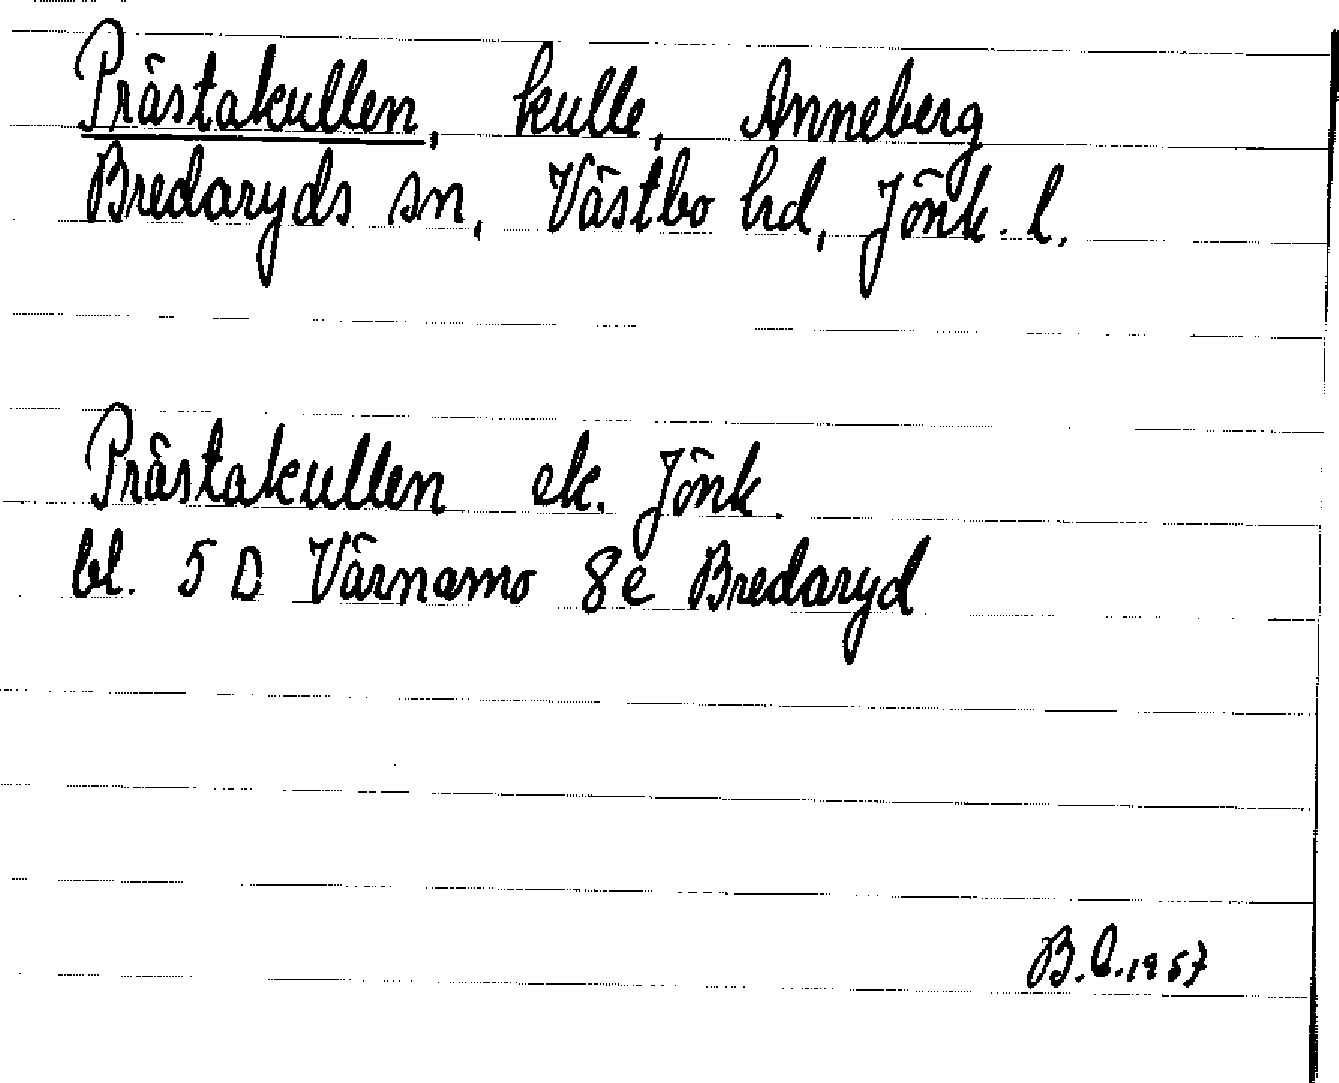 Prästakullen, kulle, Anneberg
Bredaryds sn, Västbo hd, Jönk. l.
Prästakullen ek. Jönk.
bl. 5 D Värnamo 8e Bredaryd
B.L.1957